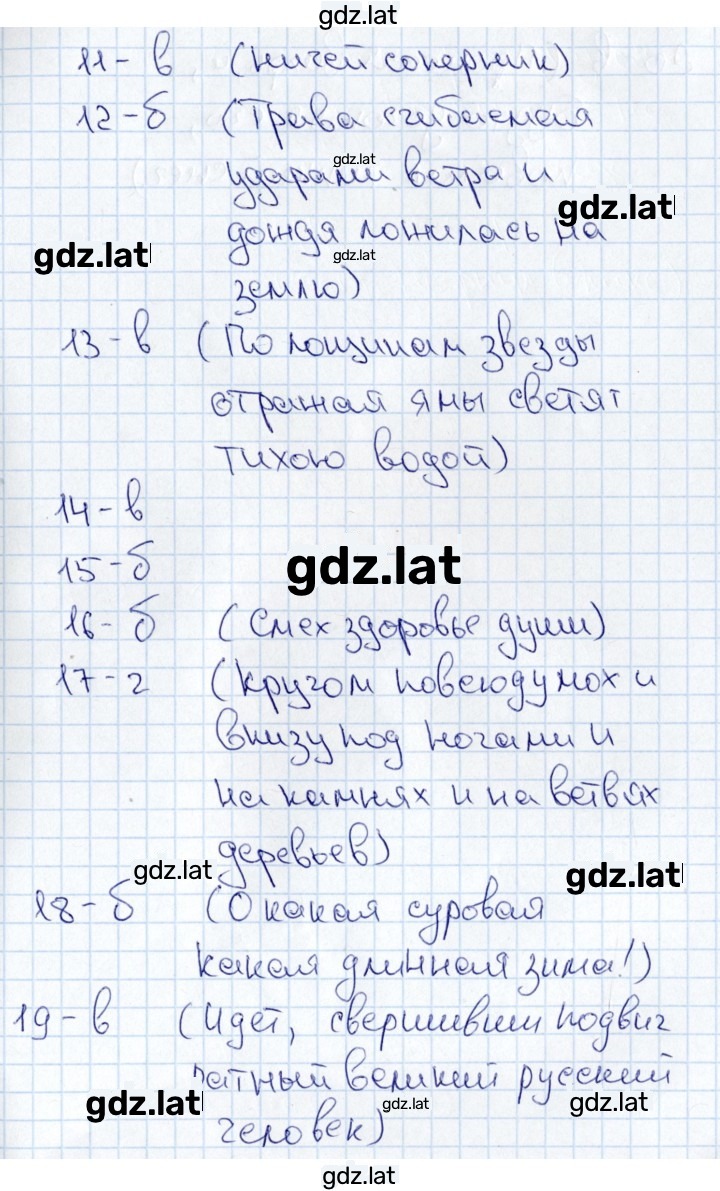 gdz.lat
11 - в (ничей соперник)
12 - б (Трава сгибаемая
gdz.lat
ударами ветра и
gdz.lat
дождя ложилась на
gdz.lat
gdz.lat
землю)
13 - в (По лощинам звезды
отражая ямы светят
тихою водой)
14 - в
gdz.lat
15 - б
16 - б (Смех здоровье души)
17 - г (Кругом повсюду мох и
внизу под ногами и
на камнях и на ветвях
деревьев)
gdz.lat
gdz.lat
18 - б (О какая суровая
какая длинная зима!)
19 - в (Идет, свершивши подвиг
ратный великий русский
gdz.lat
gdz.lat
gdz.lat
человек)
gdz.lat